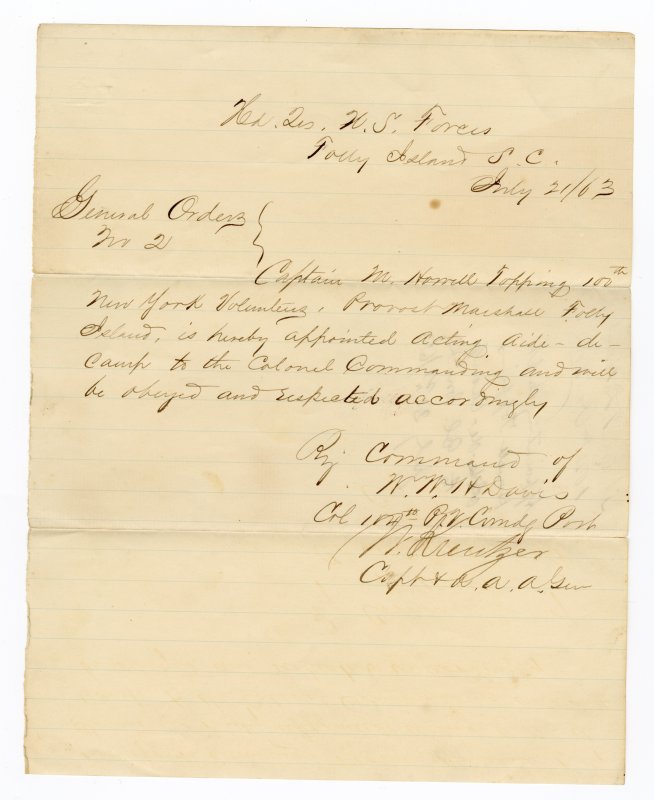 Hd. Qrs. U. S. Forces
Folly Island S. C.
July 21/63
General Orders
No 2
Captain M. Howell Topping 100th
New York Volunteers, Provost Marshall Folly
Island, is hereby appointed Acting Aide-de-
camp to the Colonel Commanding and will
be obeyed and respected accordingly
By Command of
W. W. H. Davis
Col 104th P.V. Comdg Post
W. Kreutzer
Capt & A. A. A. Gen